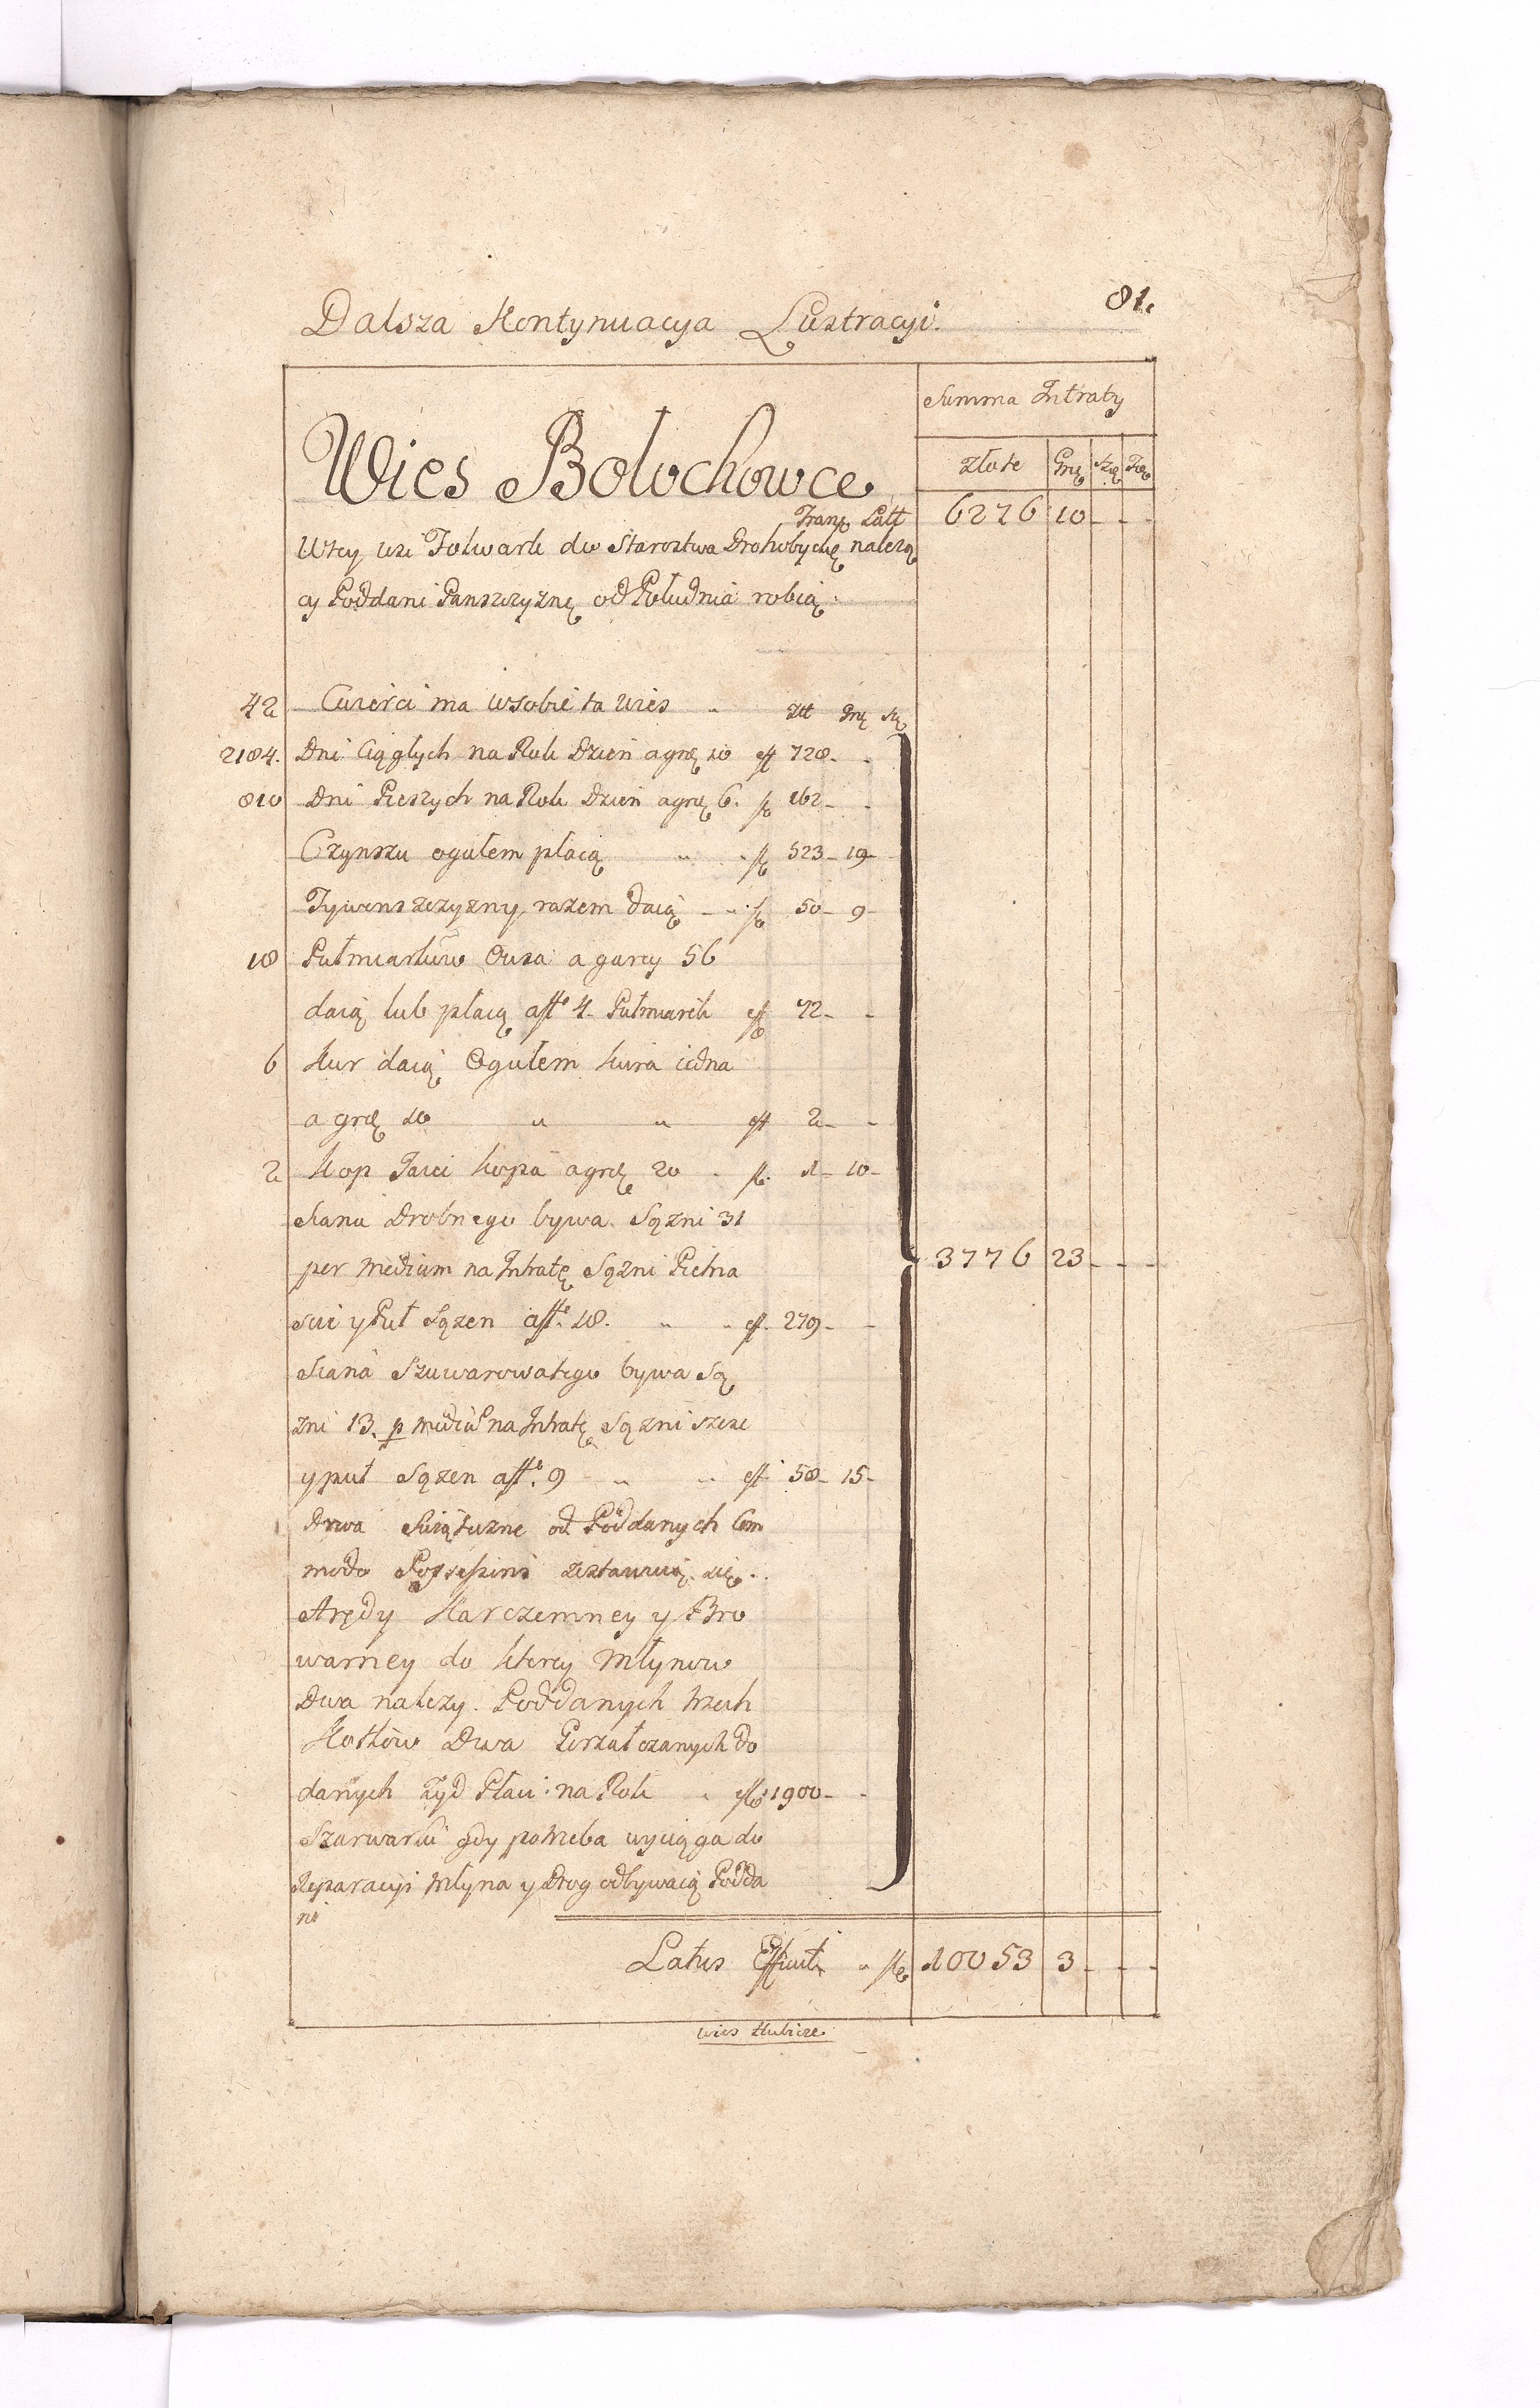 81.
Dalsza Kontynuacya Lustracyi.
Summa Intraty
Wies Bolochowce
złote Grꝫ Szꝫ
Transꝫ Latt 6276 10 - - -
Wtey wsi Folwark do Starostwa Drohobyckꝫ należą
cy Poddani Panszczyznę od Południa robią.
42 Cwierci ma wsobie ta wies " Złt Grꝫ Szꝫ
2184. Dni Ciągłych na Rok Dzień a grꝫ 10 ff 728 - -
810 Dni Pieszych na Rok Dzien agrꝫ 6. fl 162 - -
Czynszu ogułem płacą " " fl 523 - 19 -
Tywonszczyzny razem daią - " fl 50 - 9 -
18 Pułmiarków Owsa a garcy 56
daią lub płacą aff. 4. Pułmiarek ff 72 - -
6 Kur daią Ogułem kura iedna
a grꝫ 20 " " ff 2 - -
2 Kop Jaiec kopa agrꝫ 20 " fl. 1 - 10 -
Siana Drobnego bywa Sązni 31
per medium na Intratę Sązni Pietna
scie y Puł Sązen aff. 18. " " ff. 279 - -
3776 23 - - -
Siana Szuwarowatego bywa Są
zni 13. p mediu na Intratę Sązni szesc
y puł Sązen aff. 9 " " ff 58 - 15 -
Drwa Swiąteczne od Poddanych Com
modo Possessinis zostawuią się.
Arędy Karczemney y Bro
warney do ktorey Młynow
Dwa należy. Poddanych trzech
Kotłów Dwa Gorzałczanych Do
danych Zyd Płaci na Rok " fl 1900 - -
Szarwarki gdy potrzeba wyciąga do
Reparacyi Młyna y Drog odbywaią Podda
ni
Latus Efficit " fl 10053 3 - - -
wies